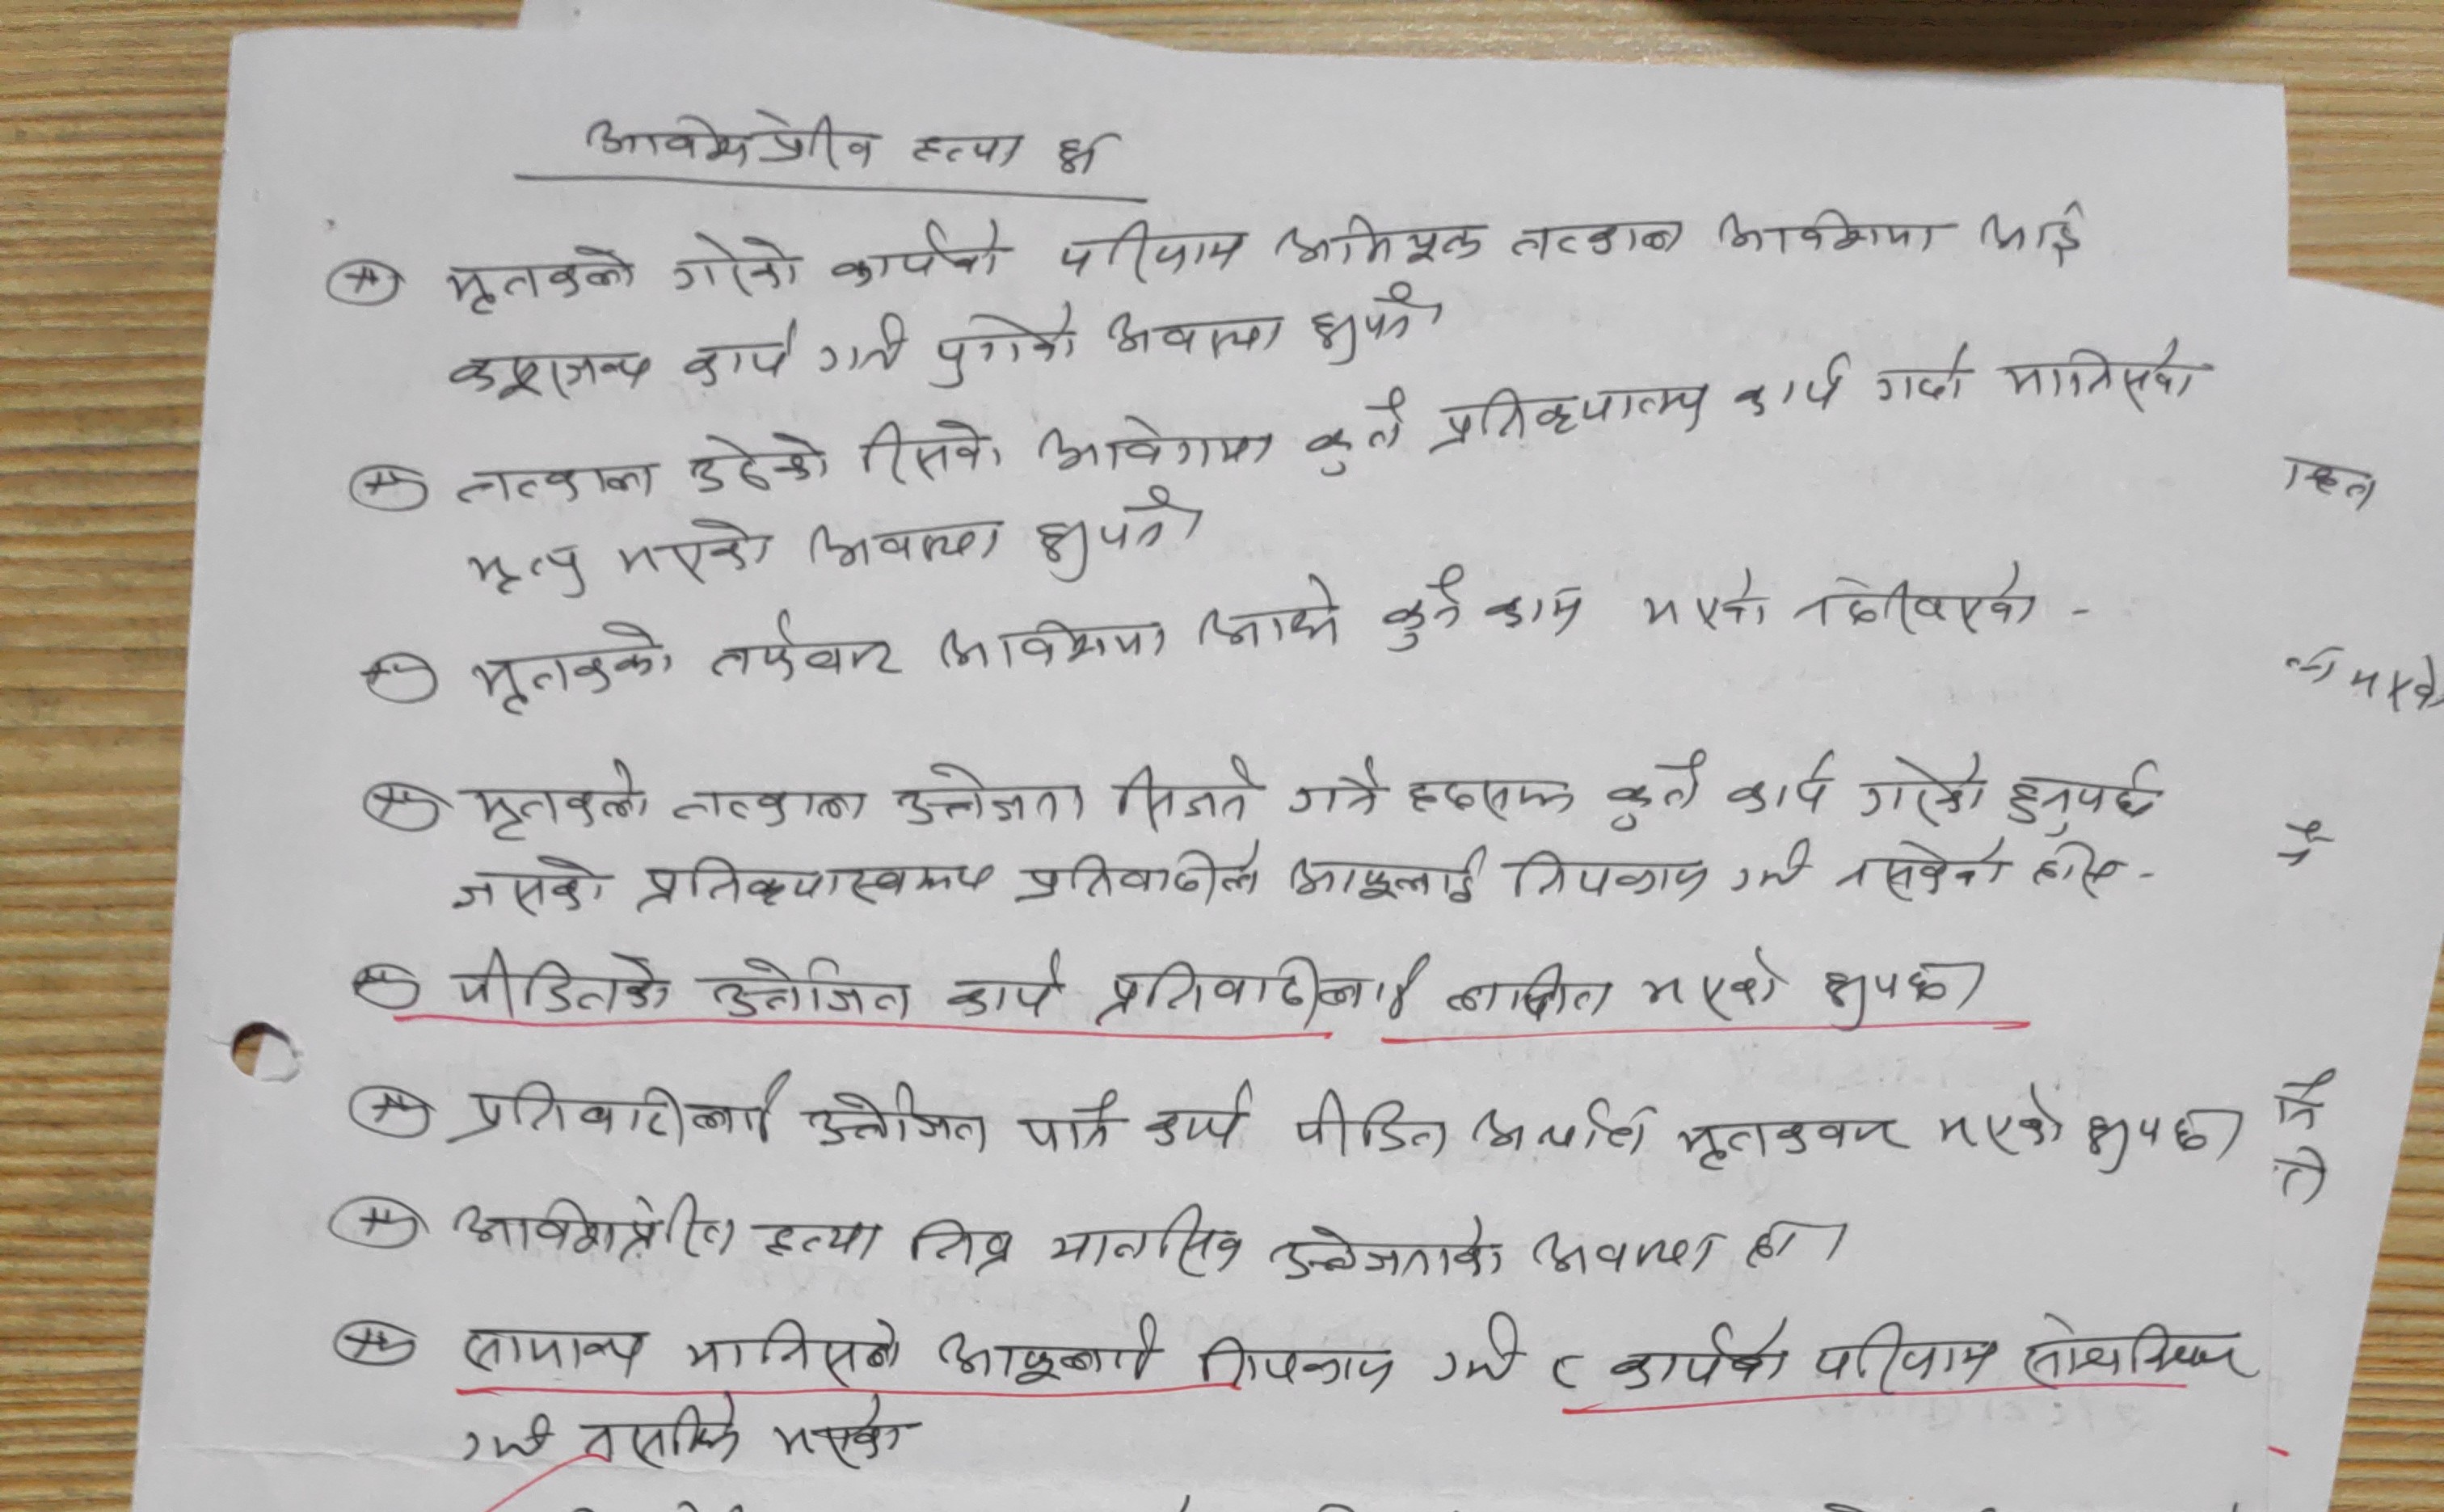 आवेशप्रेरित हत्या हुन
मृतकले गरेको कार्यको परिणाम तत्काल आवेशमा आई
कसूरजन्य कार्य गर्न पुगेको अवस्था हुनुपर्ने
तत्काल उठेको रिसको आवेगमा कुनै प्रतिक्रियात्मक कार्य गर्दा मानिसको
मृत्यु भएको अवस्था हुनुपर्ने
मृतकको तर्फबाट आवेशमा आउने कुनै काम भएको नदेखिएको -
मृतकले तत्काल उत्तेजना सिर्जना गर्ने हदसम्म कुनै कार्य गरेको हुनुपर्छ
जसको प्रतिक्रियास्वरूप प्रतिवादीले आफूलाई नियन्त्रण गर्न नसकेको होस -
पीडितको उत्तेजित कार्य प्रतिवादीलाई लक्षित भएको हुनुपर्छ।
प्रतिवादीलाई उत्तेजित पार्ने कार्य पीडित अर्थात मृतकबाट भएको हुनुपर्छ।
आवेशप्रेरित हत्या तिव्र मानसिक उत्तेजनाको अवस्था हो।
सामान्य मानिसले आफूलाई नियन्त्रण गर्न र कार्यको परिणाम सोचविचार
गर्न नसकिने भएको